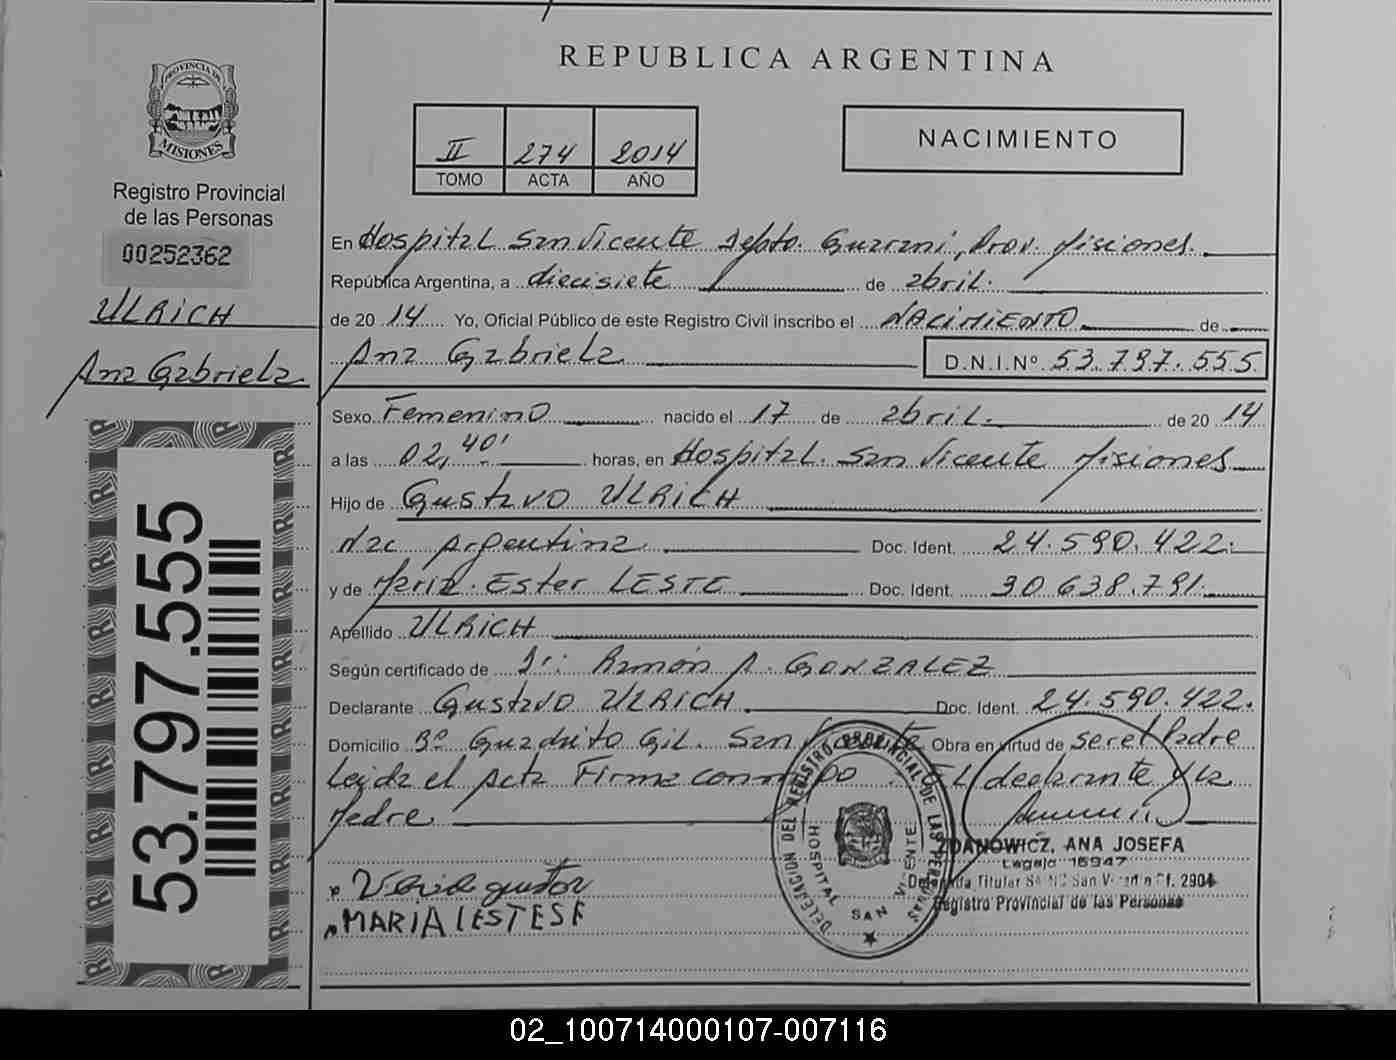 REPUBLICA ARGENTINA
PROVINCIA DE
MISIONES
Registro Provincial
de las Personas
00252362
ULRICH
Ana Gabriela
53.797.555
II 274 2014
TOMO ACTA AÑO
NACIMIENTO
En Hospital San Vicente Depto. Guarani, Prov. Misiones.
República Argentina, a diecisiete de abril.
de 20 14 Yo, Oficial Público de este Registro Civil inscribo el NACIMIENTO de
Ana Gabriela D.N.I.Nº 53.797.555
Sexo Femenino nacido el 17 de abril. de 20 14
a las 02,40' horas, en Hospital. San Vicente Misiones
Hijo de Gustavo ULRICH
Nac Argentina Doc. Ident. 24.590.422.
y de Maria Ester LESTE Doc. Ident. 30.638.791.
Apellido ULRICH
Según certificado de Dr: Ramón A. GONZALEZ
Declarante Gustavo ULRICH Doc. Ident. 24.590.422.
Domicilio Bº Guachito Gil. San Vicente Obra en virtud de ser el Padre
Leida el Acta Firma conmigo. El declarante y la
Madre
gustav
MARIA LESTE
DELEGACION DEL REGISTRO PROVINCIAL DE LAS PERSONAS
HOSPITAL SAN VICENTE
ZDANOWICZ, ANA JOSEFA
Legajo 16947
Delegada Titular San Vicente Of. 2904
Registro Provincial de las Personas
02_100714000107-007116